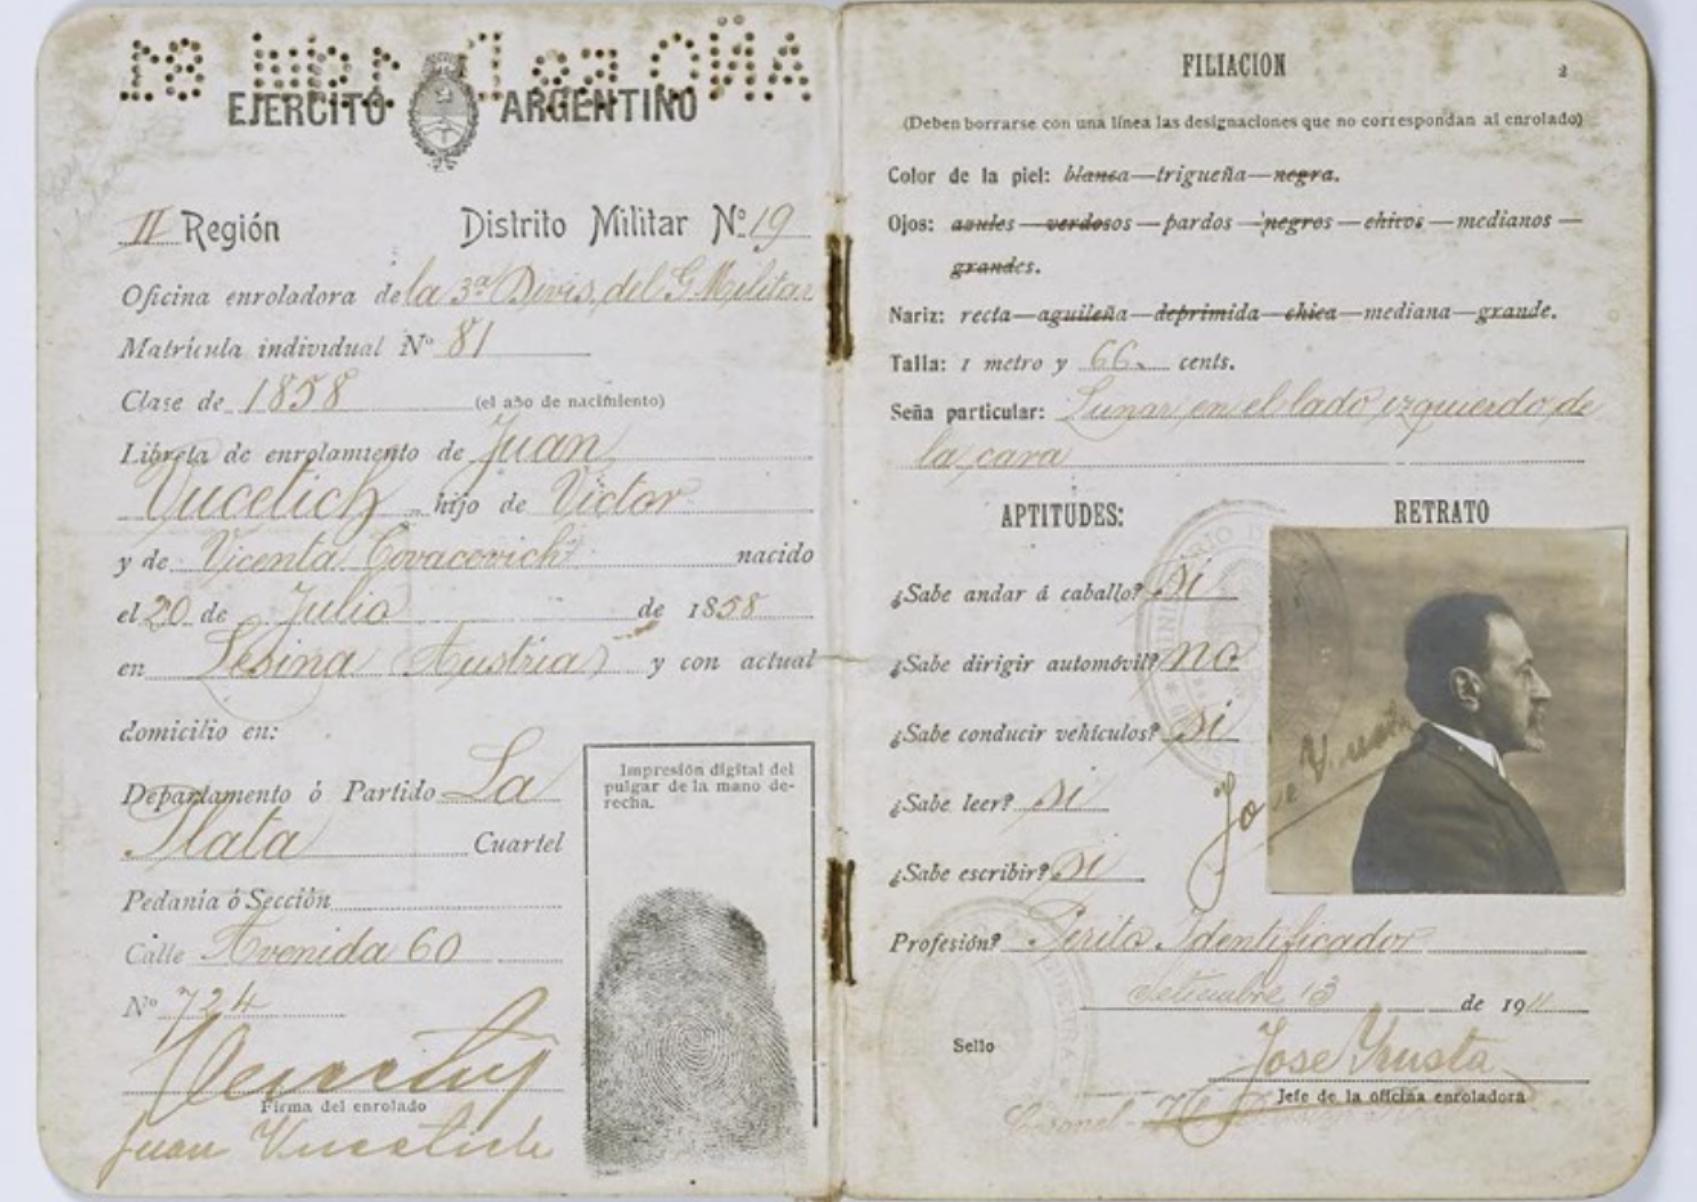 EJERCITO ARGENTINO
II Región Distrito Militar Nº 19
Oficina enroladora de la 3ª Divis. del G. Militar
Matrícula individual Nº 81
Clase de 1858 (el año de nacimiento)
Libreta de enrolamiento de Juan
Vucetich hijo de Victor
y de Vicenta Covacovich nacido
el 20 de Julio de 1858
en Lesina (Austria) y con actual
domicilio en:
Departamento ó Partido La
Plata Cuartel
Pedanía ó Sección
Calle Avenida 60
Nº 724
Firma del enrolado
Juan Vucetich
Impresión digital del
pulgar de la mano de-
recha.
FILIACION
2
(Deben borrarse con una línea las designaciones que no correspondan al enrolado)
Color de la piel: blanca—trigueña—negra.
Ojos: azules—verdosos—pardos—negros—chicos—medianos—
grandes.
Nariz: recta—aguileña—deprimida—chica—mediana—grande.
Talla: 1 metro y 66 cents.
Seña particular: Lunar en el lado izquierdo de
la cara
APTITUDES:
¿Sabe andar á caballo? si
¿Sabe dirigir automóvil? no
¿Sabe conducir vehículos? si
¿Sabe leer? si
¿Sabe escribir? si
RETRATO
Profesión? Perito Identificador
Setiembre 13 de 1911
Sello
Jose
Jefe de la oficina enroladora